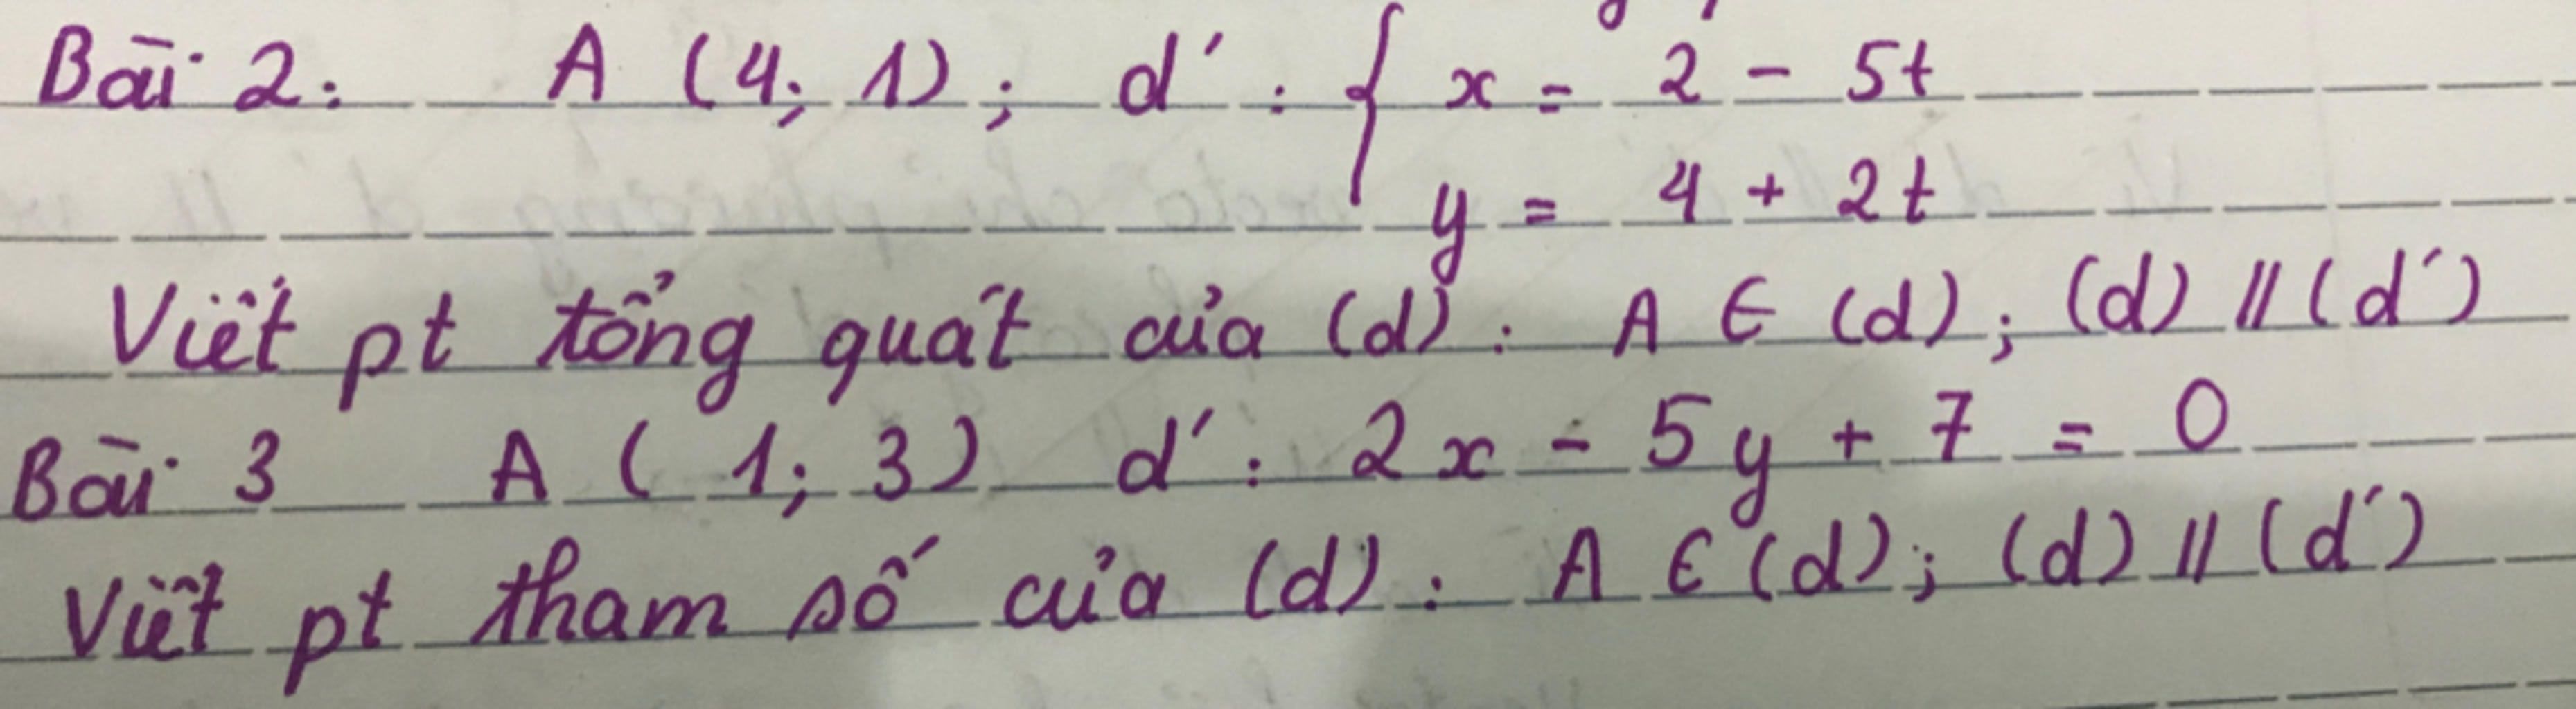 Bài 2: A (4; 1); d' : { x = 2 - 5t
y = 4 + 2t
Viết pt tổng quát của (d) : A ∈ (d); (d) // (d')
Bài 3 A ( 1; 3) d' : 2x - 5y + 7 = 0
Viết pt tham số của (d) : A ∈ (d); (d) // (d')